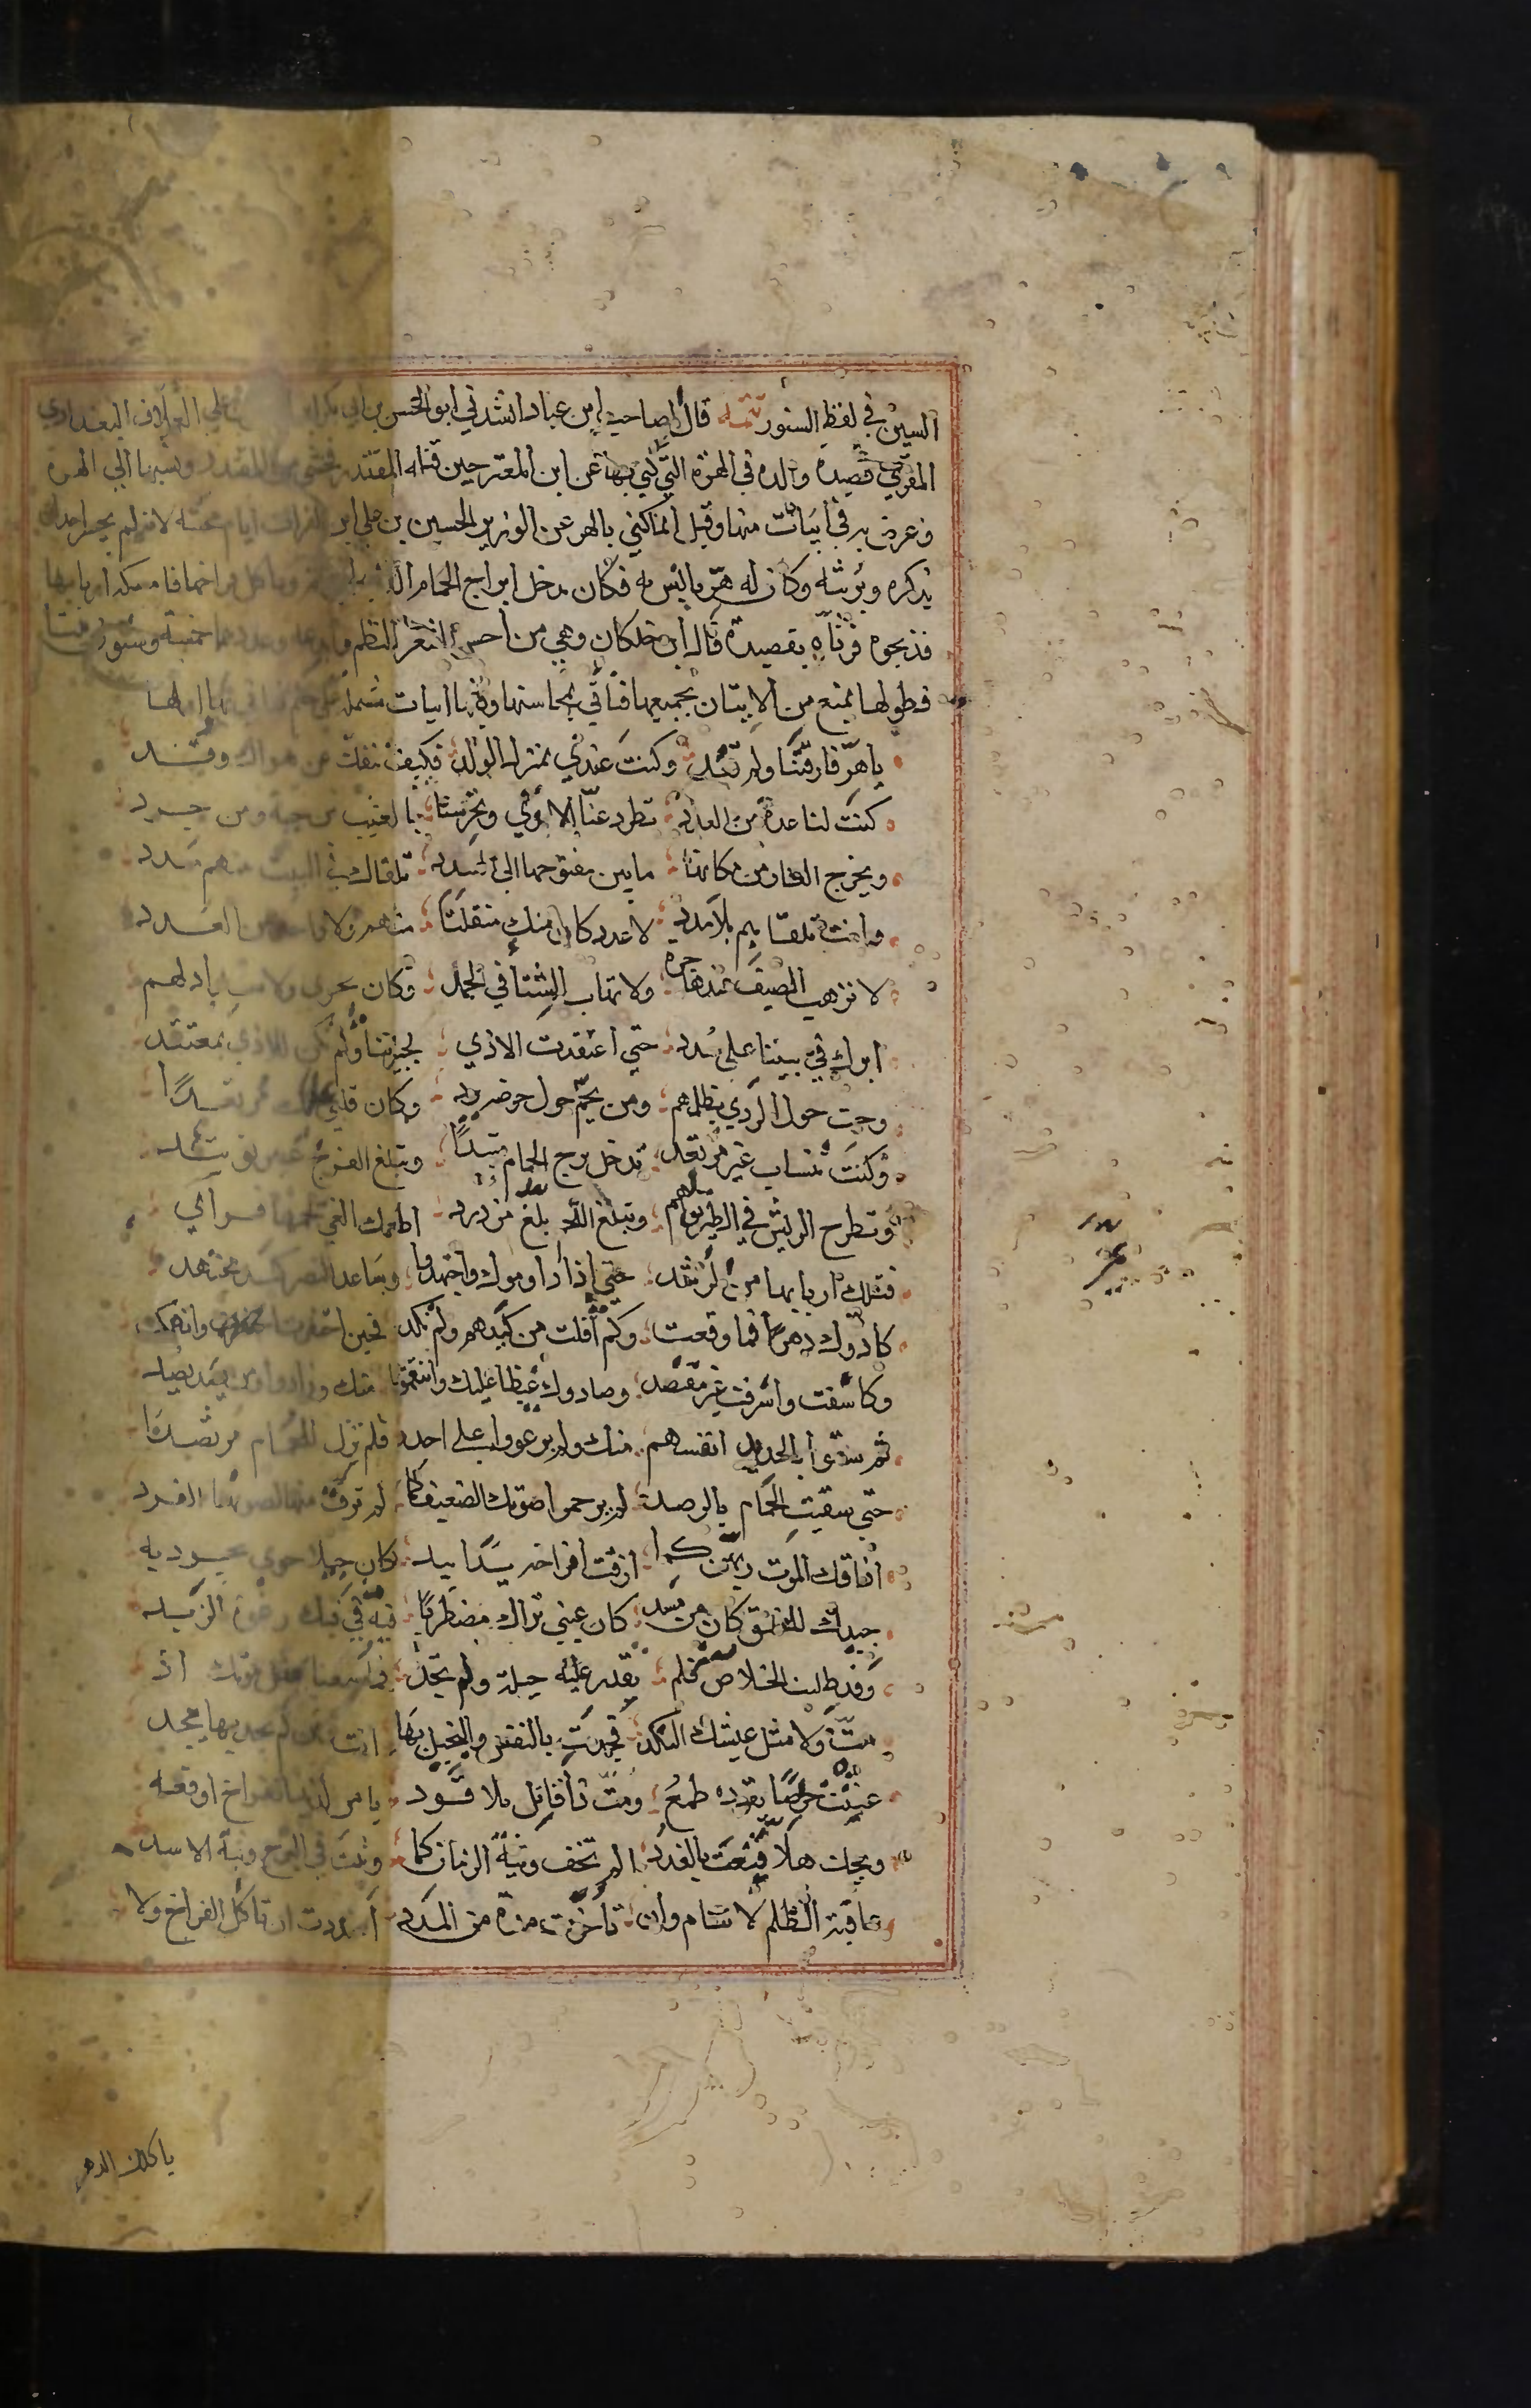 السين في لفظ السنور تتمة قال الصاحب ابن عباد انشدني ابو الحسن بن ابي بكر العلاف البغدادي
المقري قصيدة والده في الهرة التي كني بها عن ابن المعتز حين قتله المقتدر فخشي من المقتدر ونسبها الي الهرة
وعرض به في ابيات منها وقيل انما كني بالهر عن الوزير المحسن بن علي ابن الفرات ايام محنته لانه لم يجسر احد ان
يذكره ويرثيه وكان له هر يانس به فكان يدخل ابراج الحمام فامسكه اربابها
فذبحوه فرثاه بقصيدة قال ابن خلكان وهي من احسن الشعر وعددها خمسة وستون بيتا
فطولها يمنع من الاتيان بجميعها فناتي بمحاسنها وفيها ابيات اولها
يا هر فارقتنا ولم تعد وكنت عندي بمنزل الولد فكيف ننفك عن هواك وقد
كنت لنا عدة من العدد تطرد عنا الاذي وتحرسنا بالغيب من حية ومن جرد
ويخرج الفار من مكانها ما بين مفتوحها الي السدد تلقاك في البيت منهم مدد
وانت تلقاهم بلا مدد لا عدد كان منك منفلتا منهم ولا واحد من العدد
لا ترهب الصيف عند هاجرة ولا تهاب الشتا في الجمد وكان يجري ولا لهم
امرك في بيتنا علي سدد حتي اعتقدت الاذي لجيرتنا ولم تكن للاذي بمعتقد
وحمت حول الردي بظلمهم ومن يحم حول حوضه يرد وكان قلبي عليك مرتعدا
وكنت تنساب غير مرتعد تدخل برج الحمام متئدا وتبلع الفرخ غير متئد
وتطرح الريش في الطريق لهم وتبلع اللحم بلع مزدرد اطعمك الغي لحمها فراي
قتلك اربابها من الرشد حتي اذا داوموك واجتهدوا وساعد النصر كيد مجتهد
كادوك دهرا فما وقعت وكم افلت من كيدهم ولم تكد فحين اخفرت وانهمكت
وكاشفت واسرفت غير مقتصد وصادوك غيظا عليك وانتقموا منك وزادوا ومن يصد يصد
ثم شفوا بالحديد انفسهم منك ولم يرعووا علي احد فلم تزل للحمام مرتصدا
حتي سقيت الحمام بالرصد لم يرحموا صوتك الضعيف كما لم ترث منها لصوتها الغرد
اذاقك الموت ربهن كما اذقت افراخه يدا بيد كان حبلا حوي بجودته
جيدك للخنق كان من مسد كان عيني تراك مضطربا فيه وفي فيك رغوة الزبد
وقد طلبت الخلاص فلم تقدر علي حيلة ولم تجد فما سمعنا بمثل موتك اذ
مت ولا مثل عيشك النكد فجدت بالنفس والبخيل بها انت ومن لم يجد بها يجد
عشت حريصا يقوده طمع ومت ذا قاتل بلا قود يا من لذيذ الفراخ اوقعه
ويحك هلا قنعت بالغدد الم تخف وثبة الزمان كما وثبت في البرج وثبة الاسد
عاقبة الظلم لا تنام وان تاخرت مدة من المدد اردت ان تاكل الفراخ ولا
ياكلك الدهر